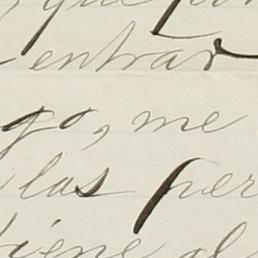 que por
entrar
go, me
las per
iene al